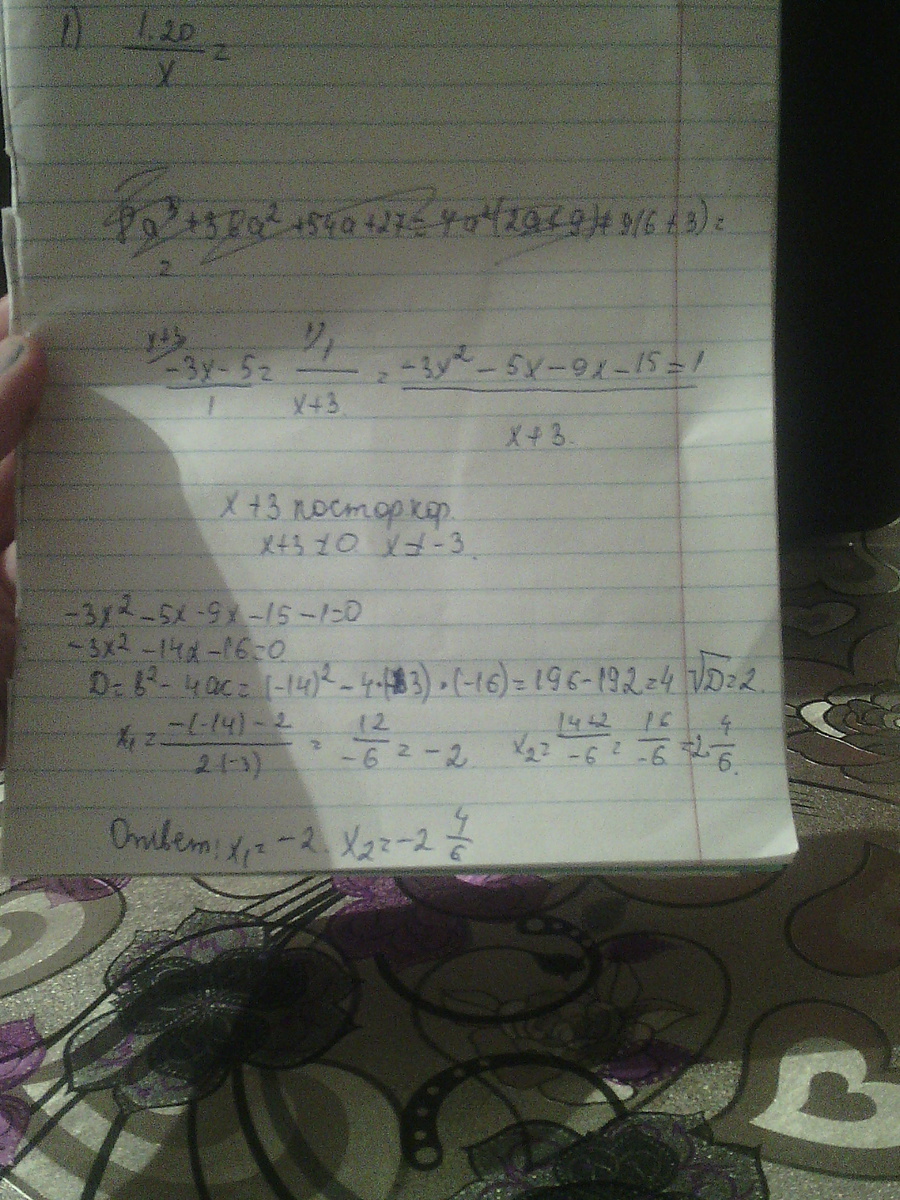 1) 1.20 / x =
8a³+38a²+54a+27=4a²(2a+9)+9(6+3)=
=
x+3 1)
-3x-5 / 1 = 1 / x+3 = -3x² - 5x - 9x - 15 = 1 / x+3.
x+3 постор кор.
x+3≠0 x≠-3.
-3x²-5x-9x-15-1=0
-3x²-14x-16=0
D=b²-4ac=(-14)²-4·(-3)·(-16)=196-192=4 √D=2.
x₁= -(-14)-2 / 2(-3) = 12 / -6 = -2 x₂= 14+2 / -6 = 16 / -6 = -2 4/6.
Ответ: x₁=-2. x₂=-2 4/6